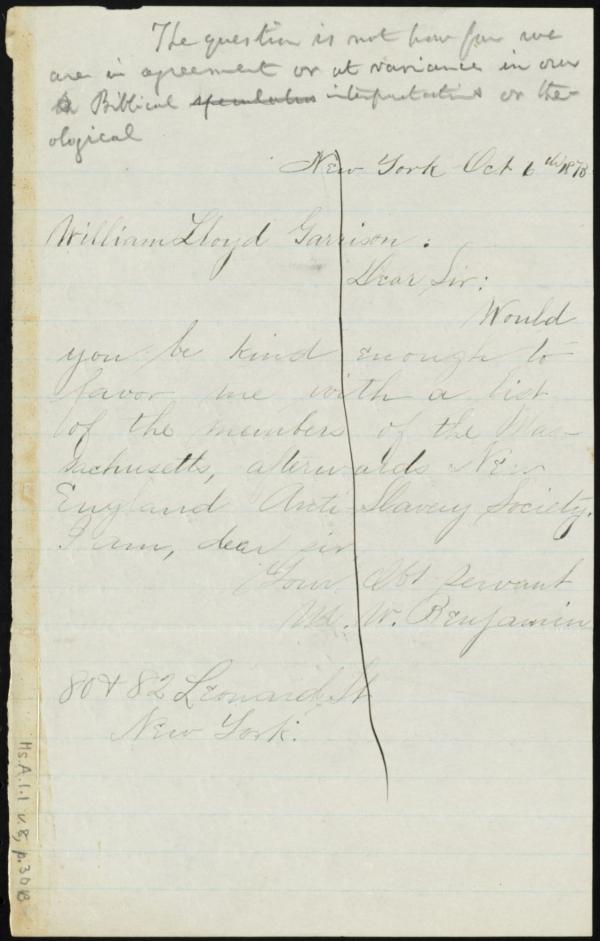 The question is not how far we
are in agreement or at variance in our
Biblical speculative interpretations or the-
ological
New York Oct 6th 1878
William Lloyd Garrison:
Dear Sir:
Would
you be kind enough to
favor me with a list
of the members of the Mas-
sachusetts, afterwards New
England Anti Slavery Society.
I am, dear sir
Your Obt servant
W. Benjamin
80 & 82 Leonard St
New York.
Ms.A.1.1 v.8, p.30B